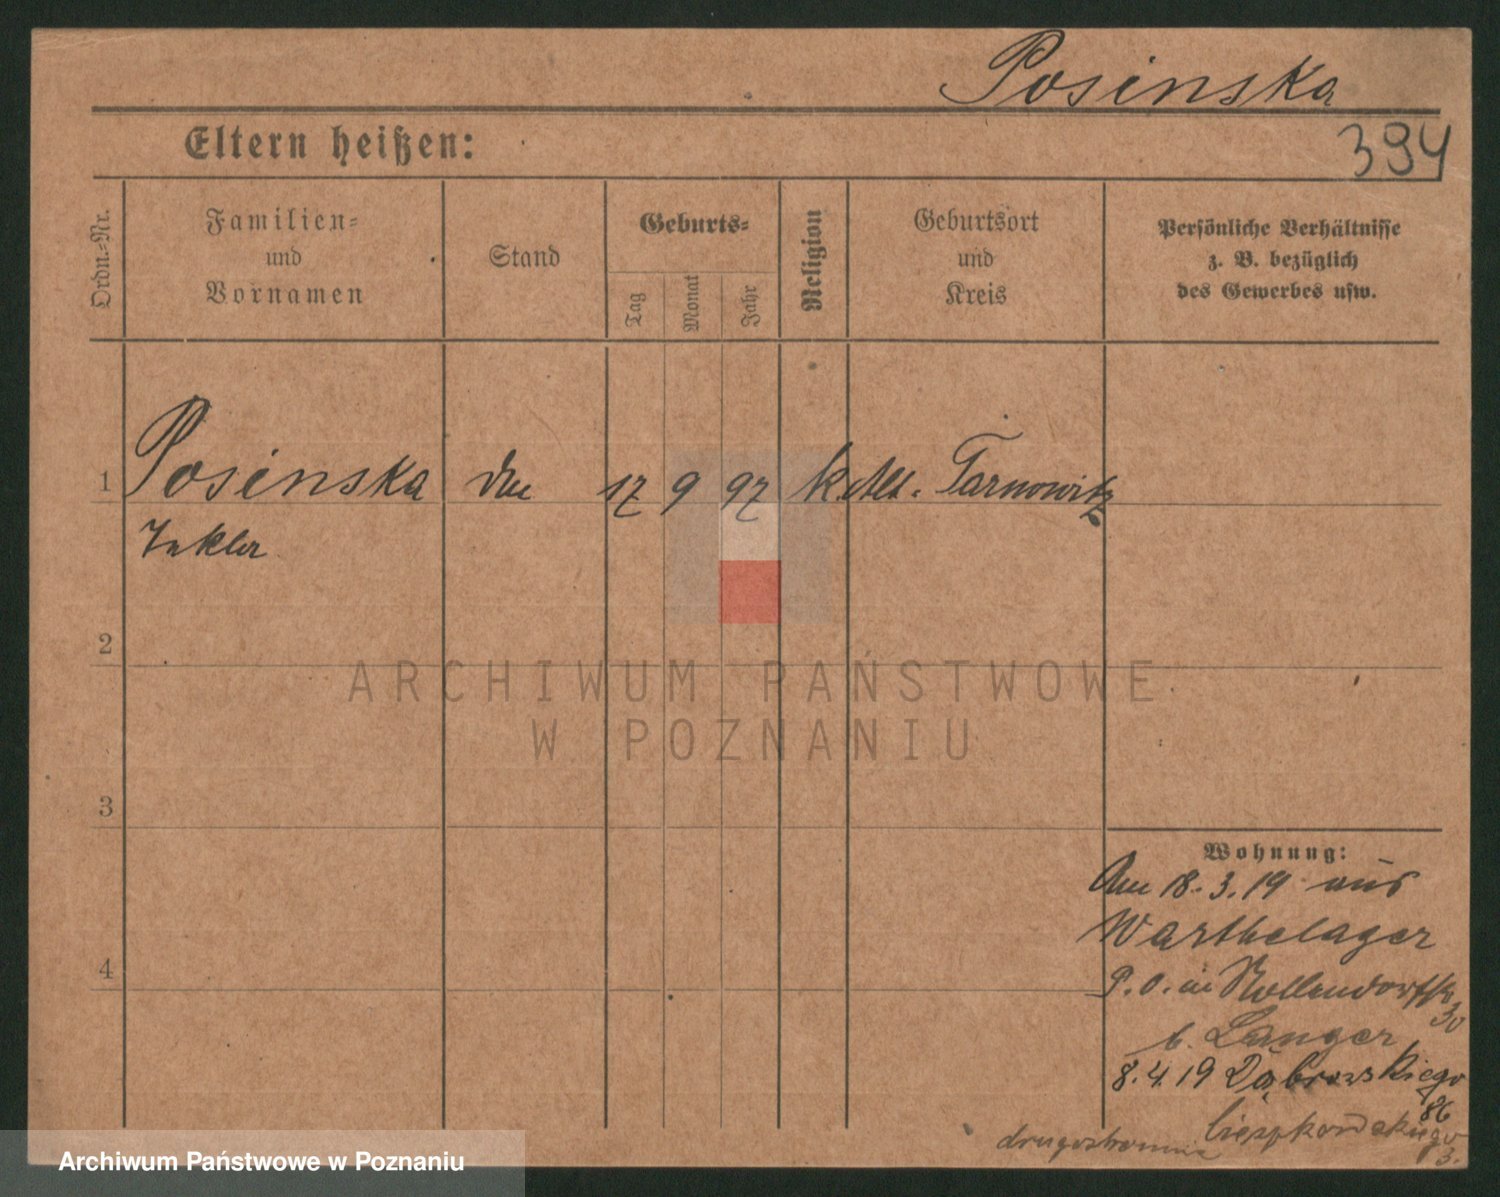 Posinska
394
Eltern heißen:
Ordn.-Nr.
Familien-
und
Vornamen
Stand
Geburts-
Tag
Monat
Jahr
Religion
Geburtsort
und
Kreis
Persönliche Verhältnisse
z. B. bezüglich
des Gewerbes usw.
1 Posinska 17 9 97 k. Alt-Tarnowitz
2
3
4
Wohnung:
Am 18.3.19 aus
Warthelager
P.O. in Nollendorfstr.
30
b. Langer
8.4.19 Dąbrowskiego
86
Cieszkowskiego
3.
drugostronnie
ARCHIWUM PAŃSTWOWE
W POZNANIU
Archiwum Państwowe w Poznaniu